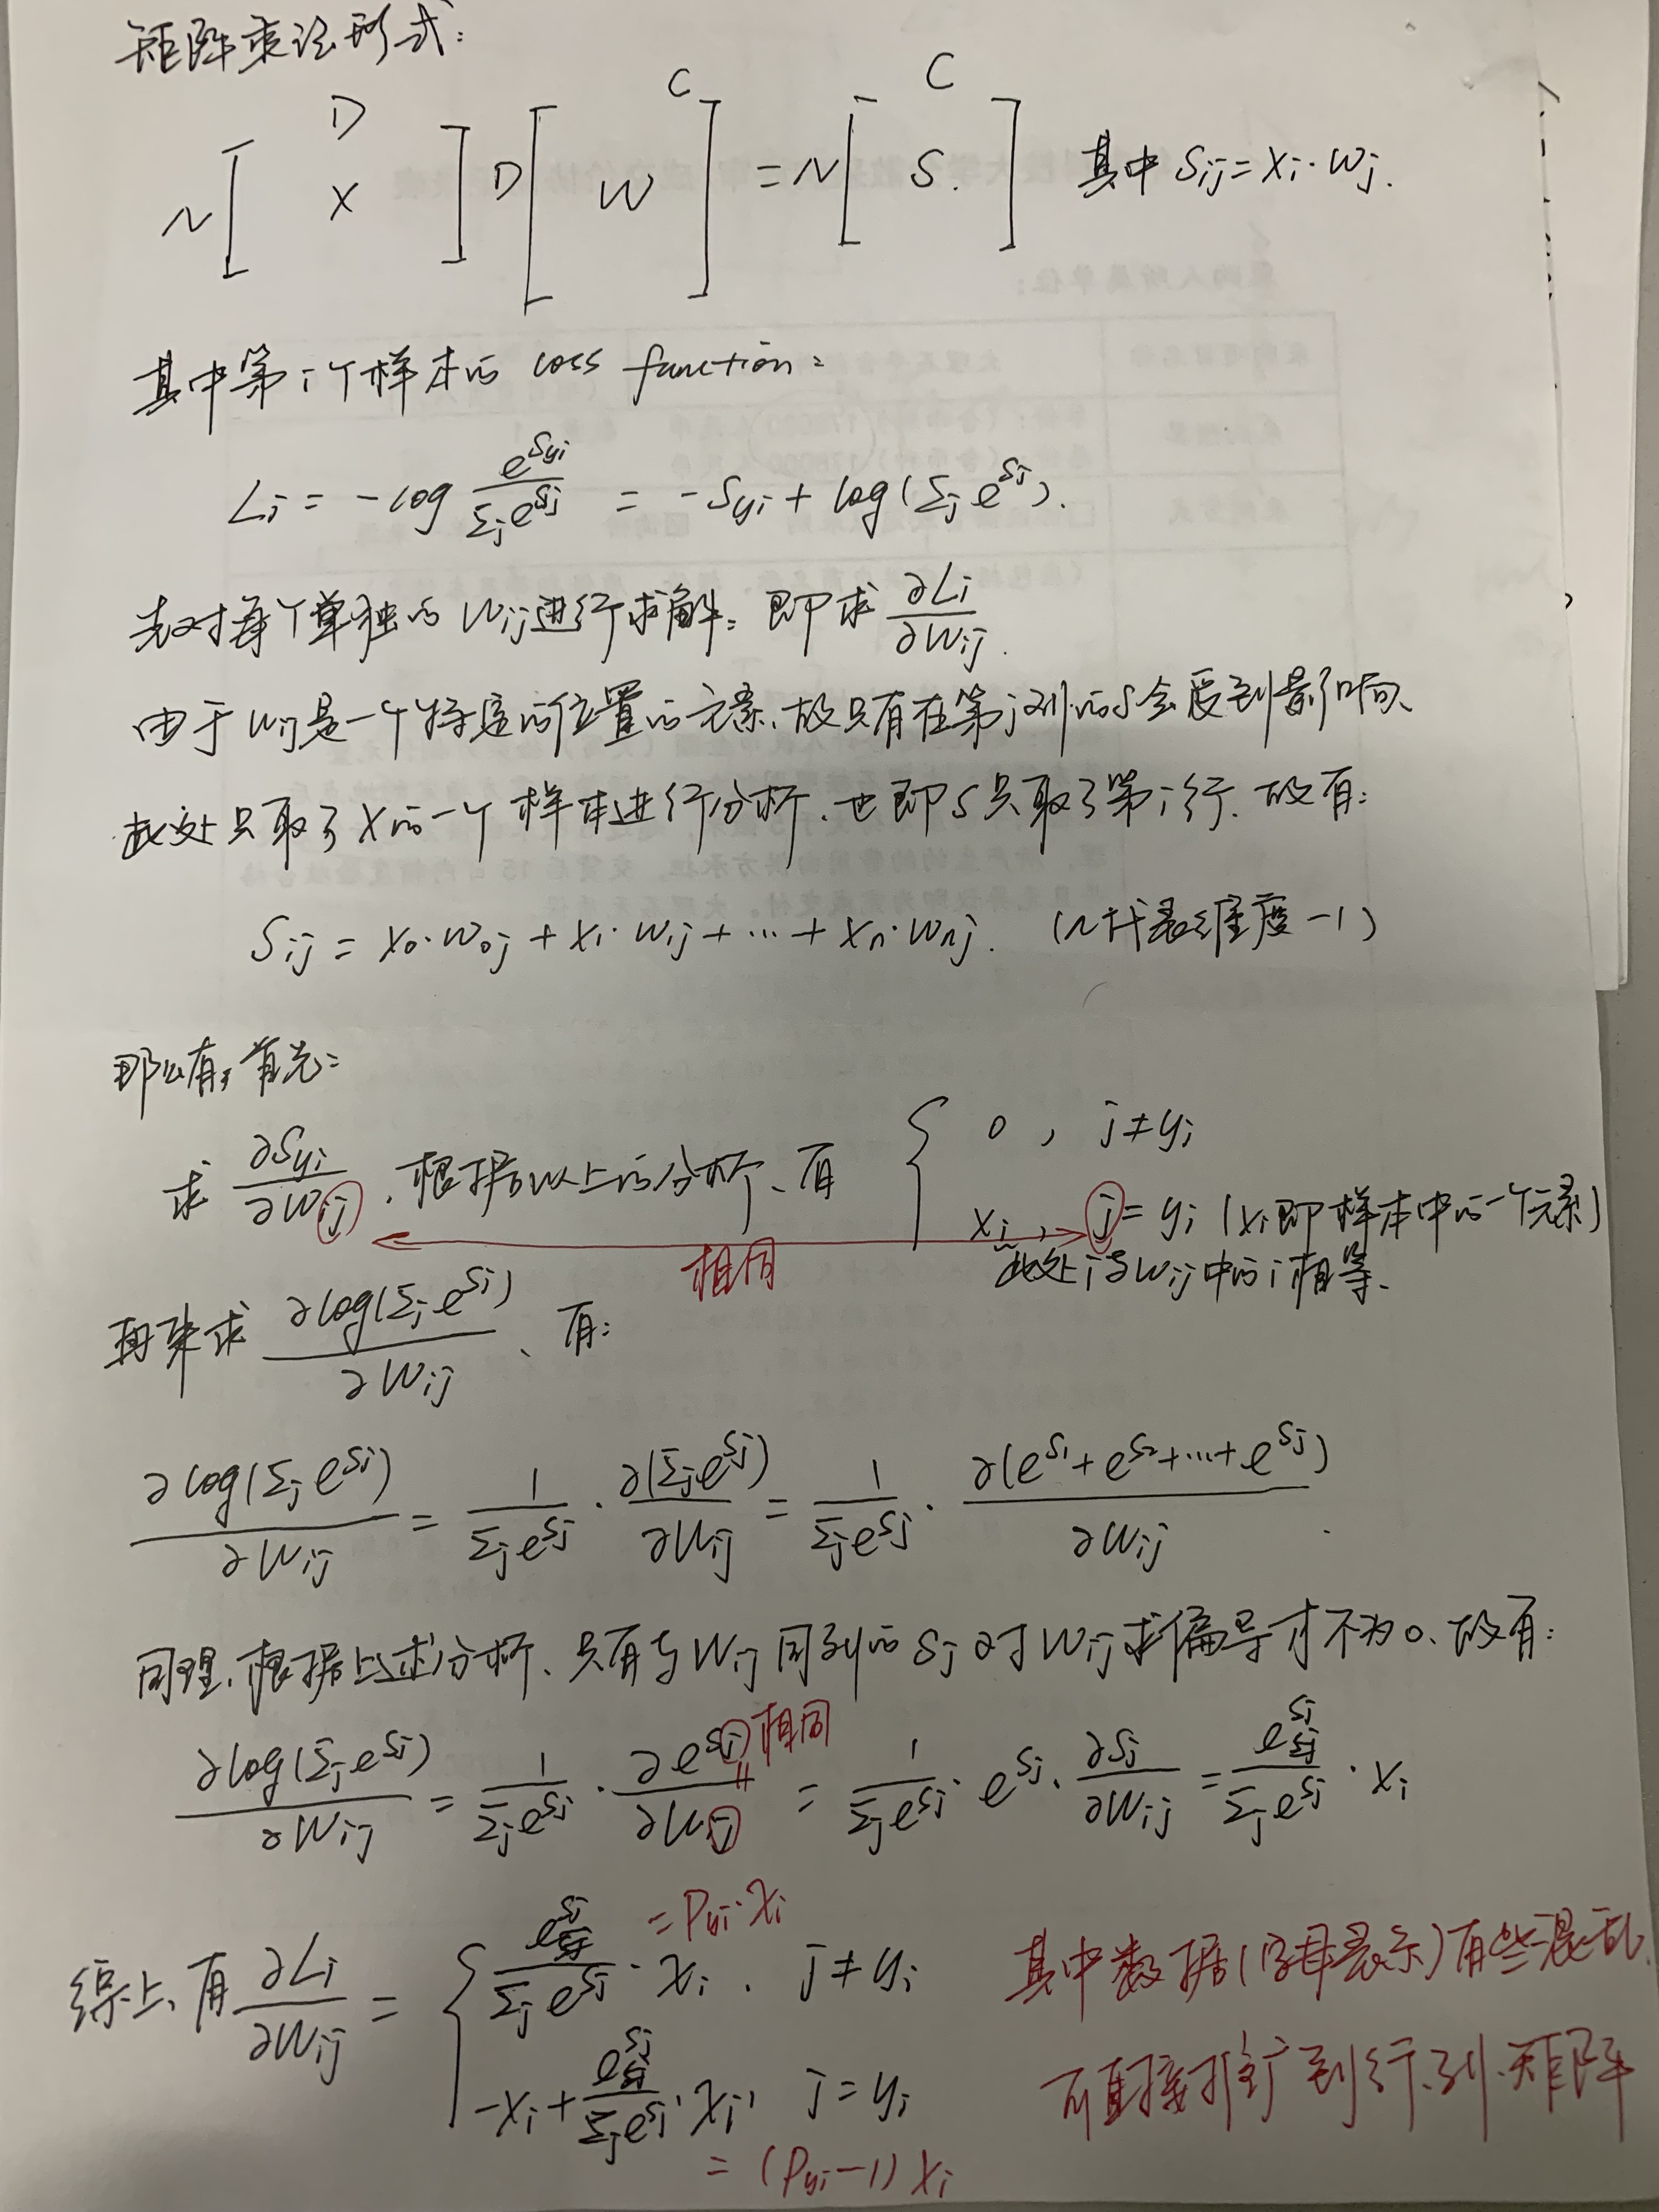 矩阵乘法形式:
D C C
N[ X ] D[ W ] = N[ S. ] 其中 Sij = Xi · Wj.
其中第 i 个样本的 loss function:
Li = -log e^Syi / Σj e^Sj = -Syi + log(Σj e^Sj).
先对每个单独的 Wij 进行求解: 即求 ∂Li / ∂Wij.
由于 Wij 是一个特定的位置的元素、故只有在第 j 列的 S 会受到影响、
此处只取了 X 的一个样本进行分析、也即 S 只取了第 i 行. 故有:
Sij = X0 · W0j + Xi · Wij + ··· + Xn · Wnj. (n代表维度-1)
那么有, 首先:
求 ∂Syi / ∂Wij 、根据以上的分析、有 { 0 , j ≠ yi
Xi , j = yi (Xi 即样本中的一个元素)
相同
此处 i 与 Wij 中的 i 相等、
再来求 ∂log(Σj e^Sj) / ∂Wij 、有:
∂log(Σj e^Sj) / ∂Wij = 1 / Σj e^Sj · ∂(Σj e^Sj) / ∂Wij = 1 / Σj e^Sj · ∂(e^S1 + e^S2 + ··· + e^Sj) / ∂Wij
同理、根据上述分析、只有与 Wij 同列的 Sj 对 Wij 求偏导才不为 0、故有:
相同
∂log(Σj e^Sj) / ∂Wij = 1 / Σj e^Sj · ∂e^Sj / ∂Wij = 1 / Σj e^Sj · e^Sj · ∂Sj / ∂Wij = e^Sj / Σj e^Sj · Xi
综上、有 ∂Li / ∂Wij = { e^Sj / Σj e^Sj · Xi . j ≠ yi
= Pyi · Xi
-Xi + e^Sj / Σj e^Sj · Xi , j = yi
= (Pyi - 1) Xi
其中数据(字母表示)有些混乱
可直接推广到行、列、矩阵